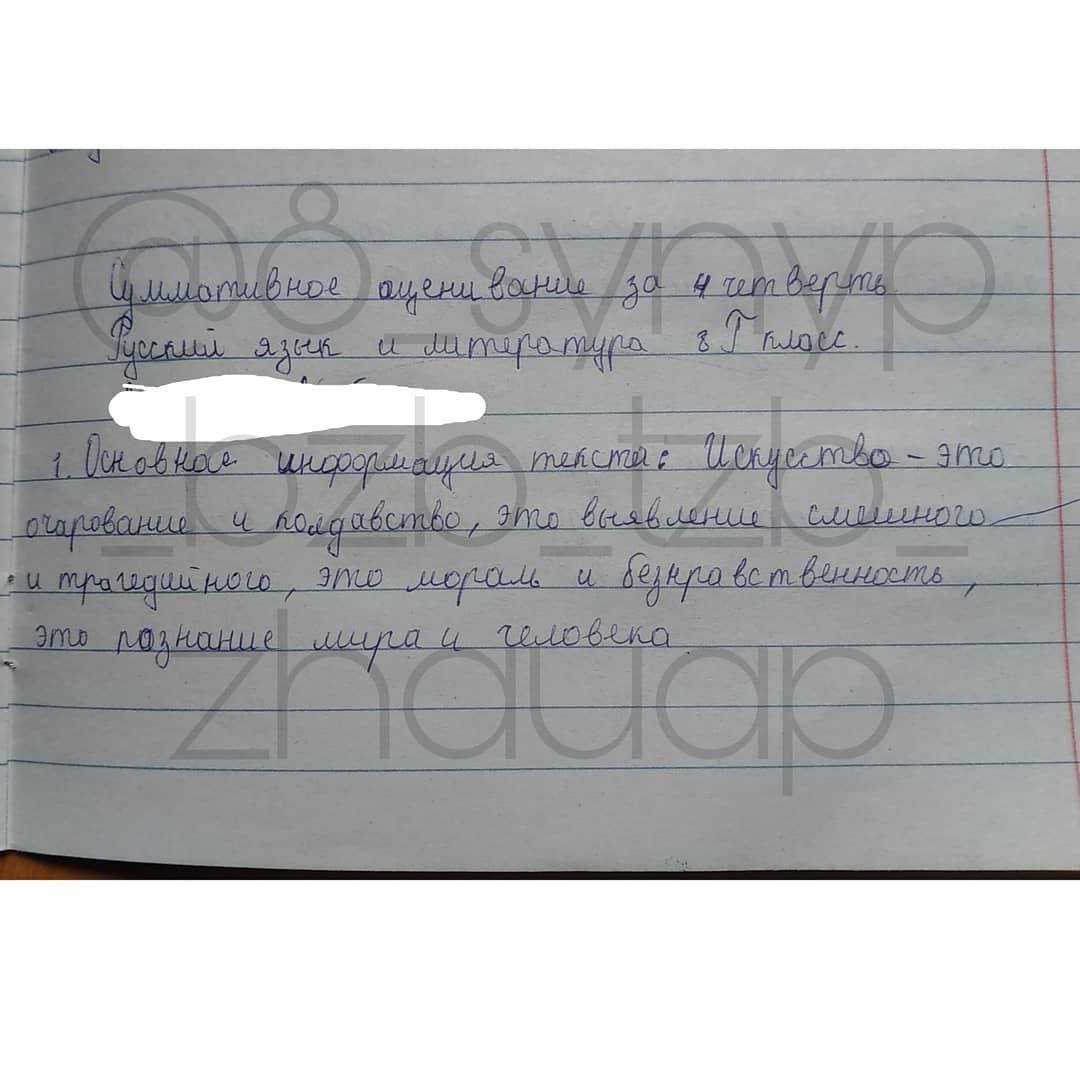 @8_synyp
_bzb_tzb_
zhauap
Суммативное оценивание за 4 четверть
Русский язык и литература 8 "Г" класс.
1. Основная информация текста: Искусство – это
очарование и колдавство, это выявление смешного
и трагедийного, это мораль и безнравственность,
это познание мира и человека